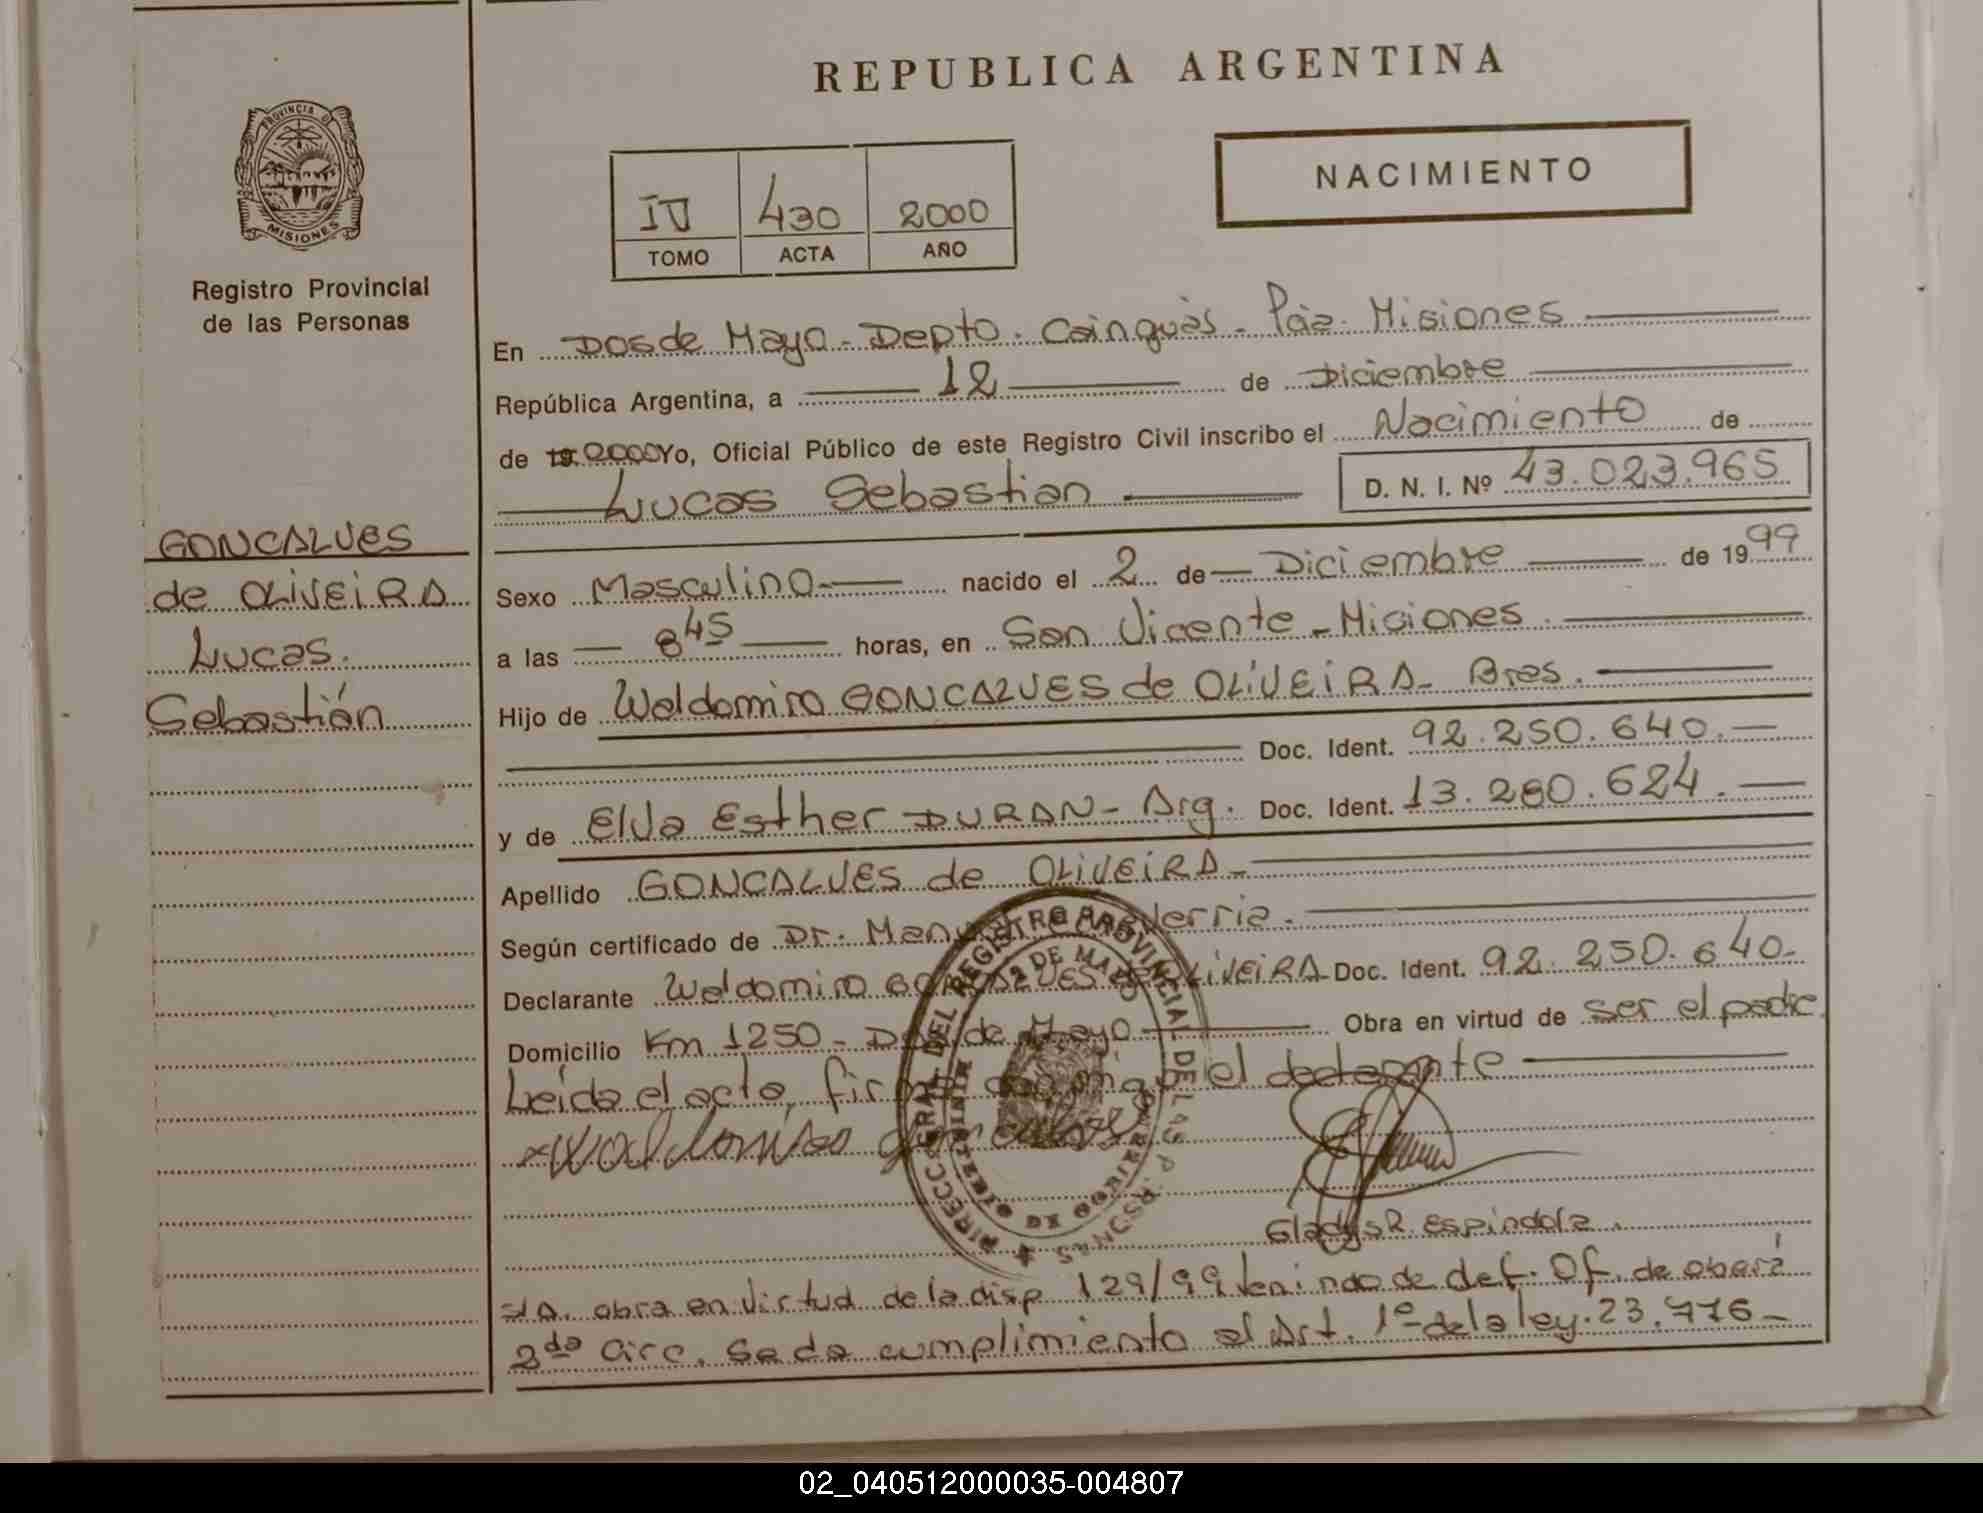 REPUBLICA ARGENTINA
PROVINCIA DE
MISIONES
NACIMIENTO
IV 430 2000
TOMO ACTA AÑO
Registro Provincial
de las Personas
GONCALVES
de OLIVEIRA
Lucas
Sebastián
En Dos de Mayo - Depto. Cainguás - Pcia. Misiones
República Argentina, a 12 de Diciembre
de 19 2000 Yo, Oficial Público de este Registro Civil inscribo el Nacimiento de
Lucas Sebastian D. N. I. Nº 43.023.965
Sexo Masculino nacido el 2 de Diciembre de 19 99
a las 8 45 horas, en San Vicente - Misiones.
Hijo de Waldomiro GONCALVES de OLIVEIRA - Bras.
Doc. Ident. 92.250.640.
y de Elva Esther DURAN - Arg. Doc. Ident. 13.280.624.
Apellido GONCALVES de OLIVEIRA -
Según certificado de Dr.
Declarante Waldomiro GONCALVES de OLIVEIRA Doc. Ident. 92.250.640-
Domicilio Km 1250 - Dos de Mayo Obra en virtud de ser el padre.
Leída el acta, firma conmigo el declarante
Waldomiro
DIRECC. GRAL. DEL REGISTRO PROVINCIAL DE LAS PERSONAS
2 DE MAYO
Gladys R. Espindola.
s/a. obra en virtud de la disp 129/99 de def. Of. de oberá
2da circ. Se da cumplimiento al Art. 1º de la ley. 23.776-
02_040512000035-004807